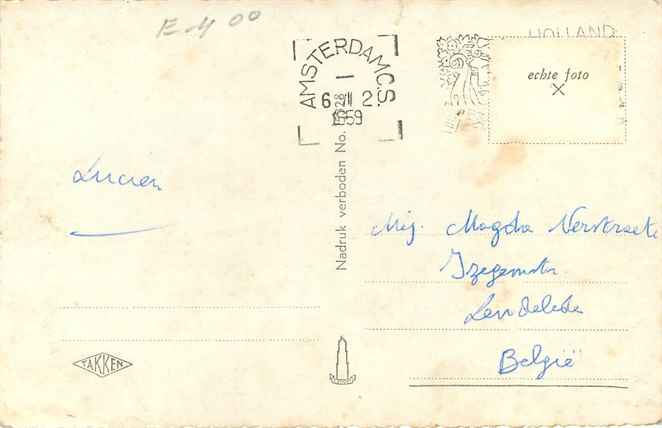 E-4 00
AMSTERDAM C.S.
6 VII 2
1959
HOLLAND
echte foto
X
Nadruk verboden No.
Lucien
Mej. Magda Verstraete
Izegemstr.
Lendelede
België
TAKKEN